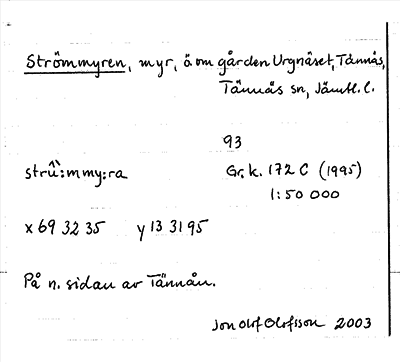 Strömmyren, myr, ä om gården Urgnäset, Tännäs,
Tännäs sn, Jämtl. l.
93
strû̀:mmy:ra Gr. k. 172 C (1995)
1:50 000
x 69 32 35 y 13 31 95
På n. sidan av Tännån.
Jon Olof Olofsson 2003